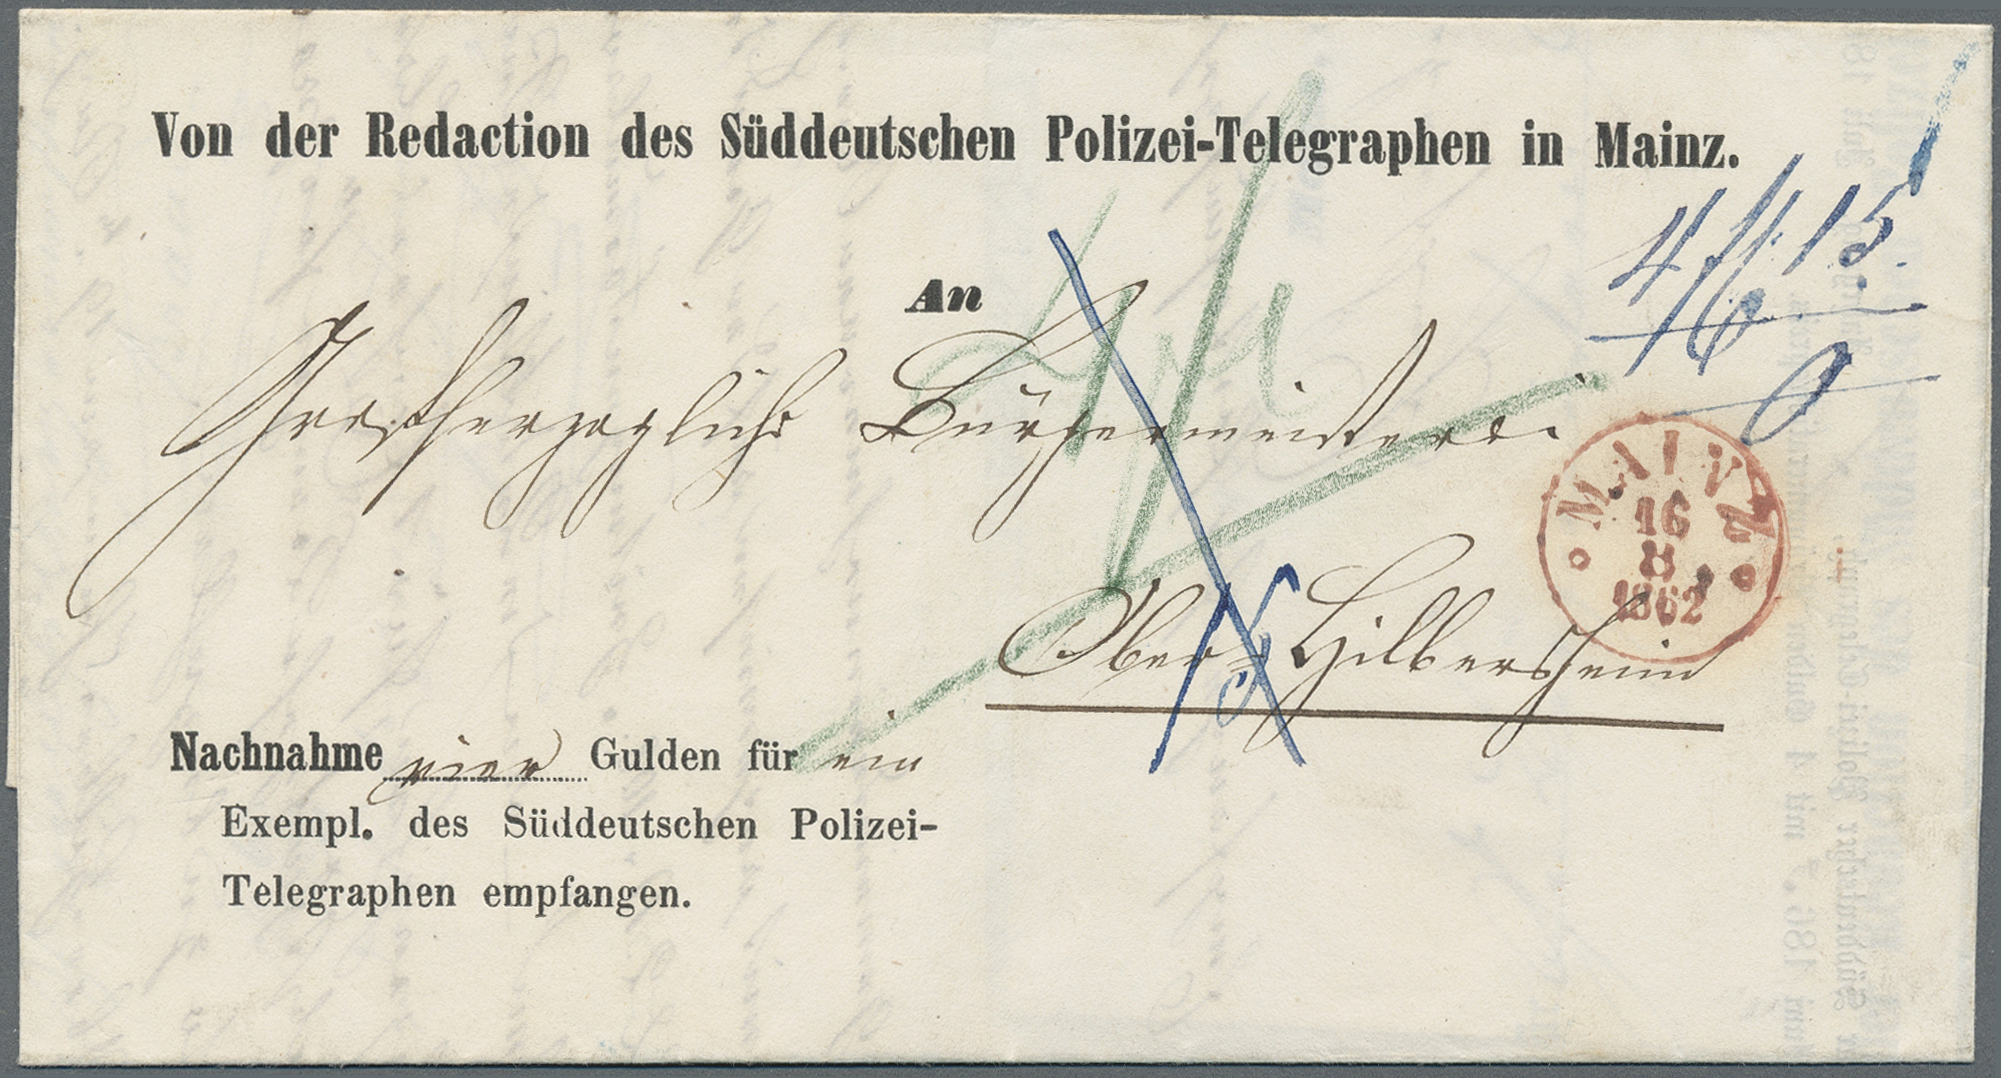 Von der Redaction des Süddeutschen Polizei-Telegraphen in Mainz.
4 fl. 15
6
An
Großherzogliche Bürgermeisterei
MAINZ
16
8
1862
Ober-Hilbersheim
Nachnahme vier Gulden für ein
Exempl. des Süddeutschen Polizei-
Telegraphen empfangen.